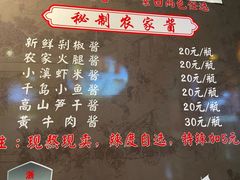 秘制农家酱
新鲜剁椒酱 20元/瓶
农家火腿酱 20元/瓶
小溪虾米酱 20元/瓶
千岛小鱼酱 20元/瓶
高山笋干酱 20元/瓶
黄牛肉酱 30元/瓶
注：现熬现卖，辣度自选，特辣加5元